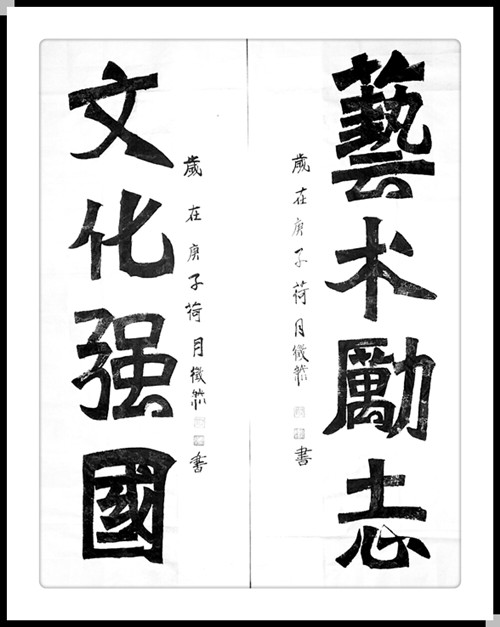 藝术勵志
歲在庚子荷月書
文化强國
歲在庚子荷月書